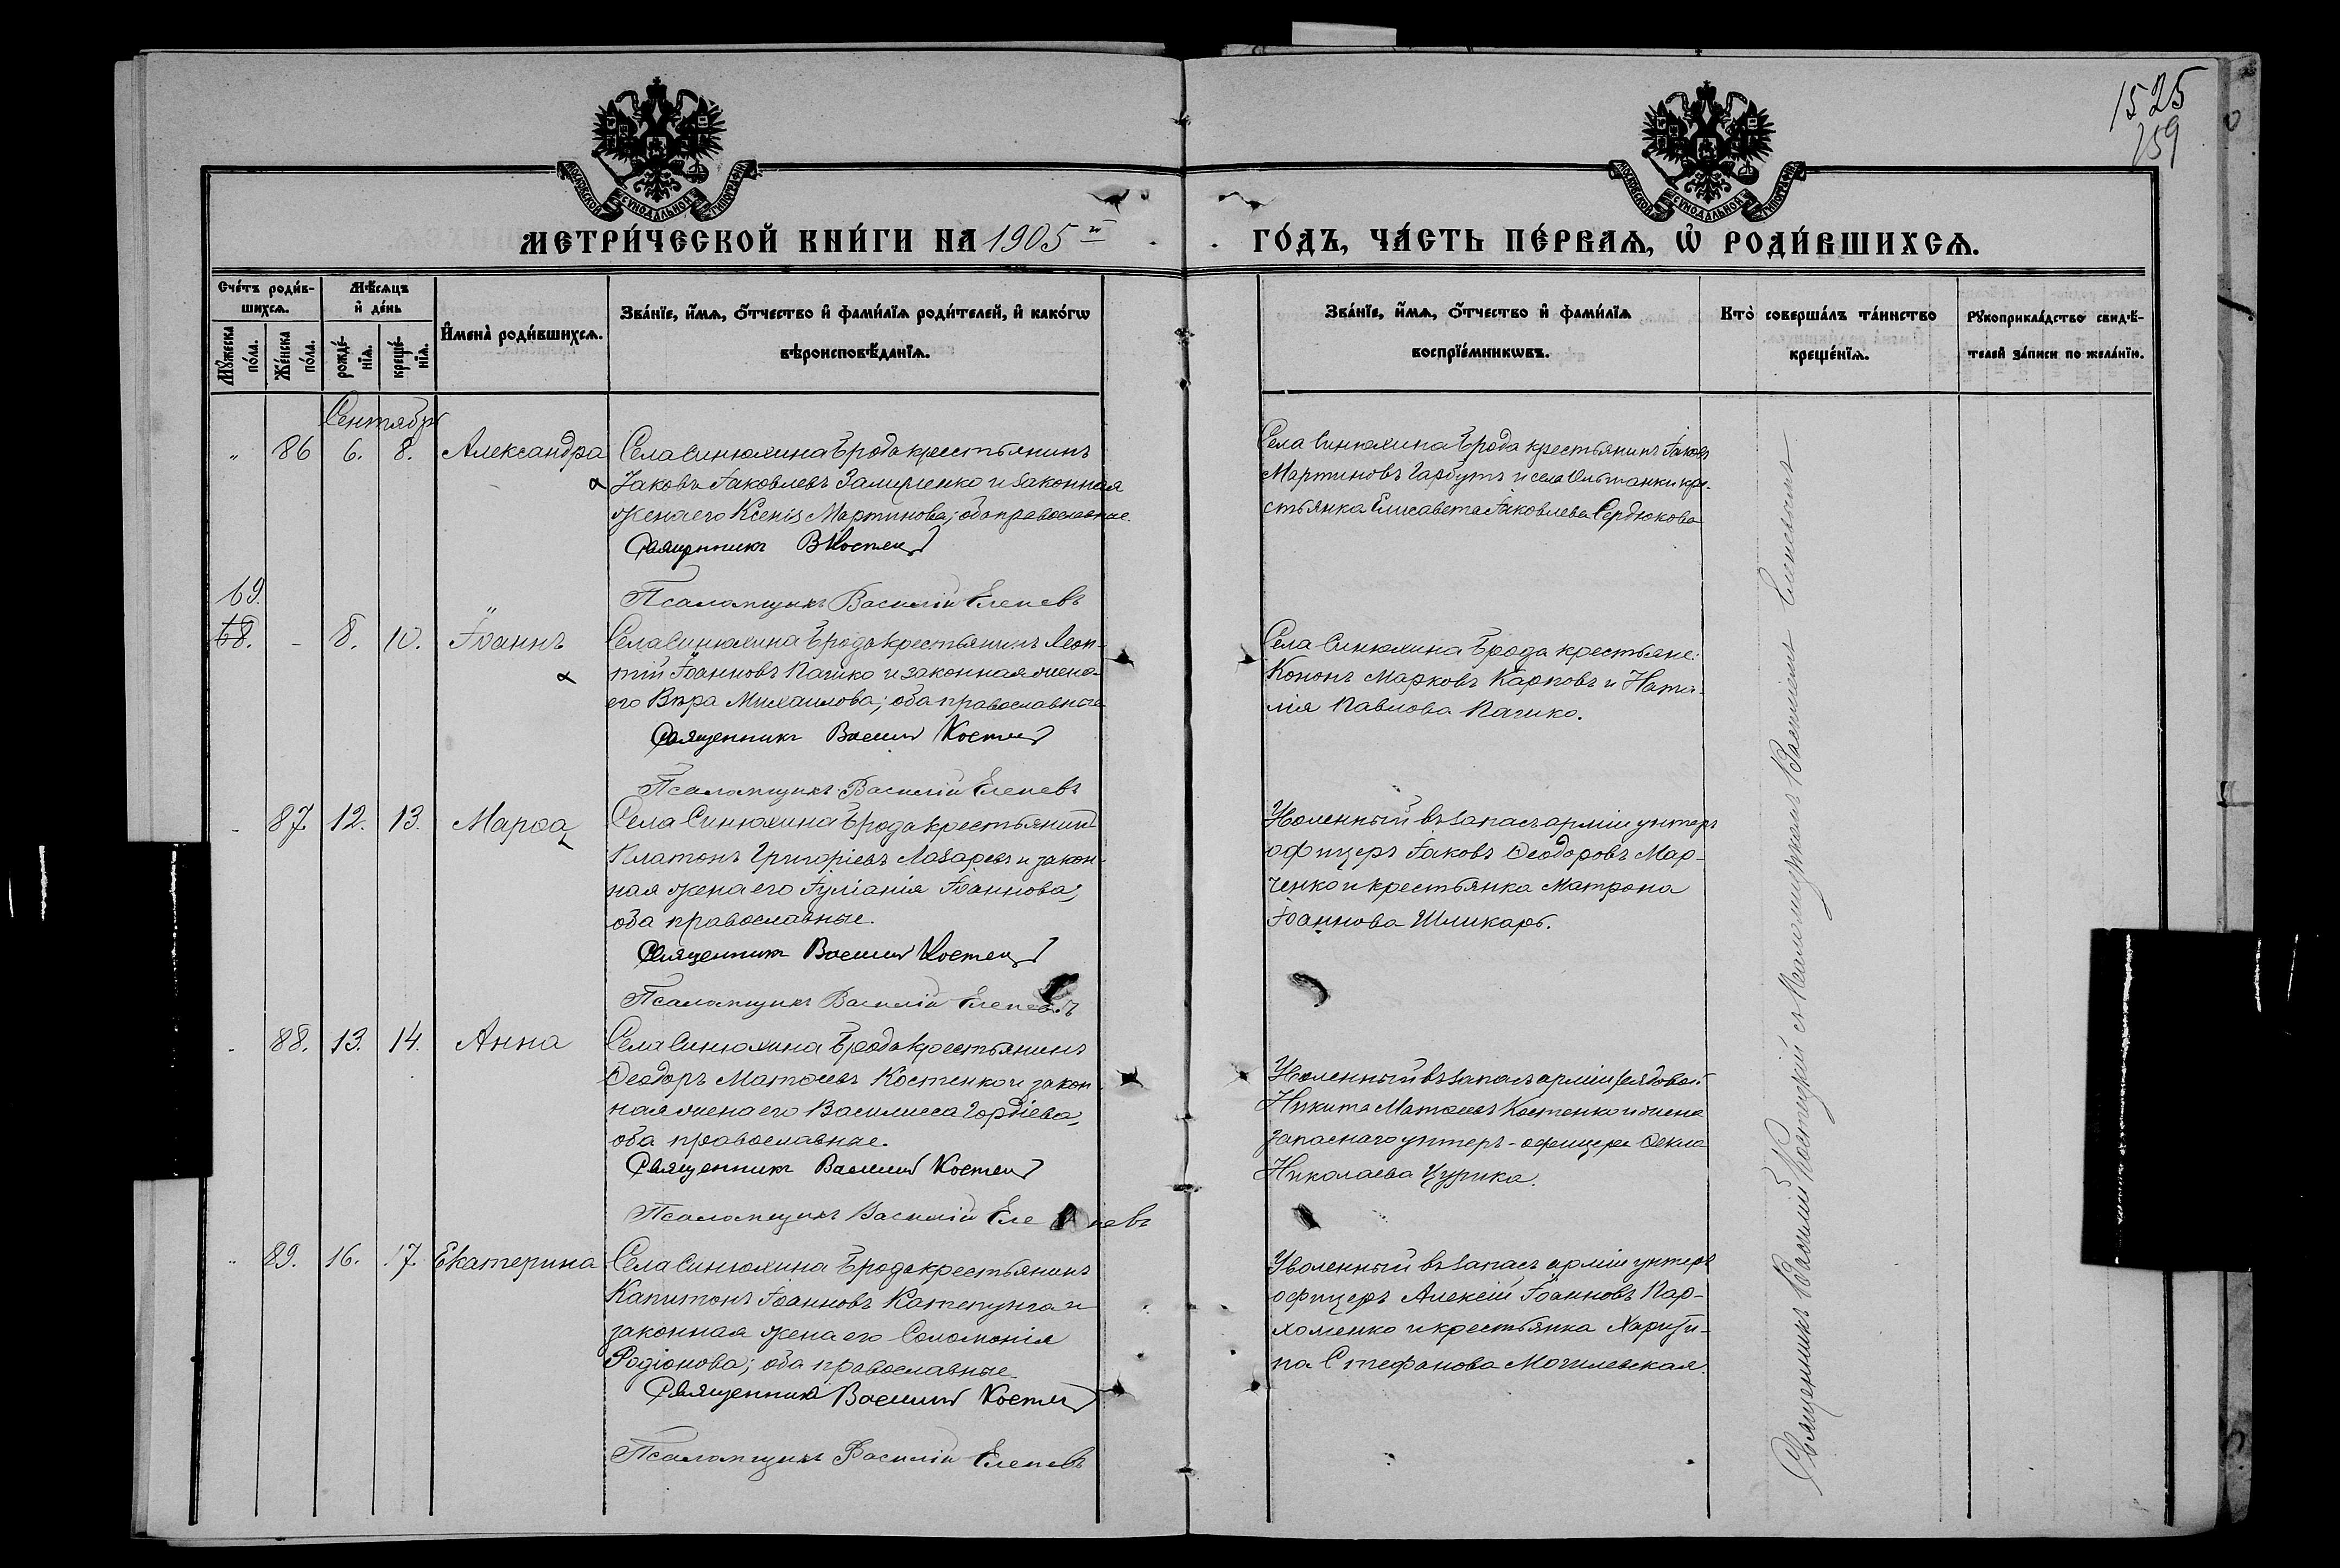 1525
159
МОСКОВСКОЙ СѴНОДАЛЬНОЙ ТИПОГРАФІИ
МОСКОВСКОЙ СѴНОДАЛЬНОЙ ТИПОГРАФІИ
МЕТРИ́ЧЕСКОЙ КНИ́ГИ НА 1905 й
ГО́ДЪ, ЧА́СТЬ ПЕ́РВАѦ, Ѽ РОДИ́ВШИХСѦ.
Сче́тъ роди́в-
шихсѧ.
Мꙋ́жеска по́ла.
Же́нска по́ла.
Мѣ́сѧцъ
и҆ де́нь
рожде́-
нїѧ.
креще́-
нїѧ.
И҆мена̀ роди́вшихсѧ.
Зва́нїе, и҆́мѧ, ѻ҆́тчество и҆ фами́лїѧ роди́телей, и҆ како́гѡ
вѣроисповѣ́данїѧ.
Зва́нїе, и҆́мѧ, ѻ҆́тчество и҆ фами́лїѧ
воспрїе́мникѡвъ.
Кто̀ соверша́лъ та́инство
креще́нїѧ.
Рꙋкоприкла́дство свидѣ́-
телей за́писи по жела́нїю.
Сентябрь
" 86 6. 8. Александра
Села Синюхина Брода крестьянинъ
Іаковъ Іаковлевъ и законная
жена его Ксенія Мартинова; оба православные.
Священникъ В Костец
Псаломщикъ Василій Елепевъ
Села Синюхина Брода крестьянинъ Іаковъ
Мартиновъ Гарбузъ и села Ольшанки кре-
стьянка Елисавета Іаковлева Сердюкова
69.
68. - 8. 10. Іоаннъ
Села Синюхина Брода крестьянинъ Леон-
тій Іоанновъ Пашко и законная жена
его Вѣра Михаилова; оба православные
Священникъ Василій Костец
Псаломщикъ Василій Елепевъ
Села Синюхина Брода крестьяне:
Кононъ Марковъ Карповъ и Ната-
лія Павлова Пашко.
- 87. 12. 13. Марѳа
Села Синюхина Брода крестьянинъ
Платонъ Григоріевъ Лазаревъ и закон-
ная жена его Іуліанія Іоаннова;
оба православные.
Священникъ Василій Костец
Псаломщикъ Василій Елепевъ
Уволенный въ запасъ арміи унтеръ
офицеръ Іаковъ Ѳеодоровъ Мар-
ченко и крестьянка Матрона
Іоаннова Шликарь.
- 88. 13. 14. Анна
Села Синюхина Брода крестьянинъ
Ѳеодоръ Матѳіевъ Костенко и закон-
ная жена его Василисса Гордіева,
оба православные.
Священникъ Василій Костец
Псаломщикъ Василій Елепевъ
Уволенный въ запасъ арміи рядовой
Никита Матѳіевъ Костенко и жена
запаснаго унтеръ-офицера Ѳекла
Николаева Цурика.
" 89. 16. 17. Екатерина
Села Синюхина Брода крестьянинъ
Капитонъ Іоанновъ и
законная жена его Соломонія
Родіонова; оба православные.
Священникъ Василій Костец
Псаломщикъ Василій Елепевъ
Уволенный въ запасъ арміи унтеръ
офицеръ Алексій Іоанновъ Пар-
хоменко и крестьянка Харити-
на Стефанова Могилевская.
Священникъ Василій Костецкій съ псаломщикомъ Василіемъ